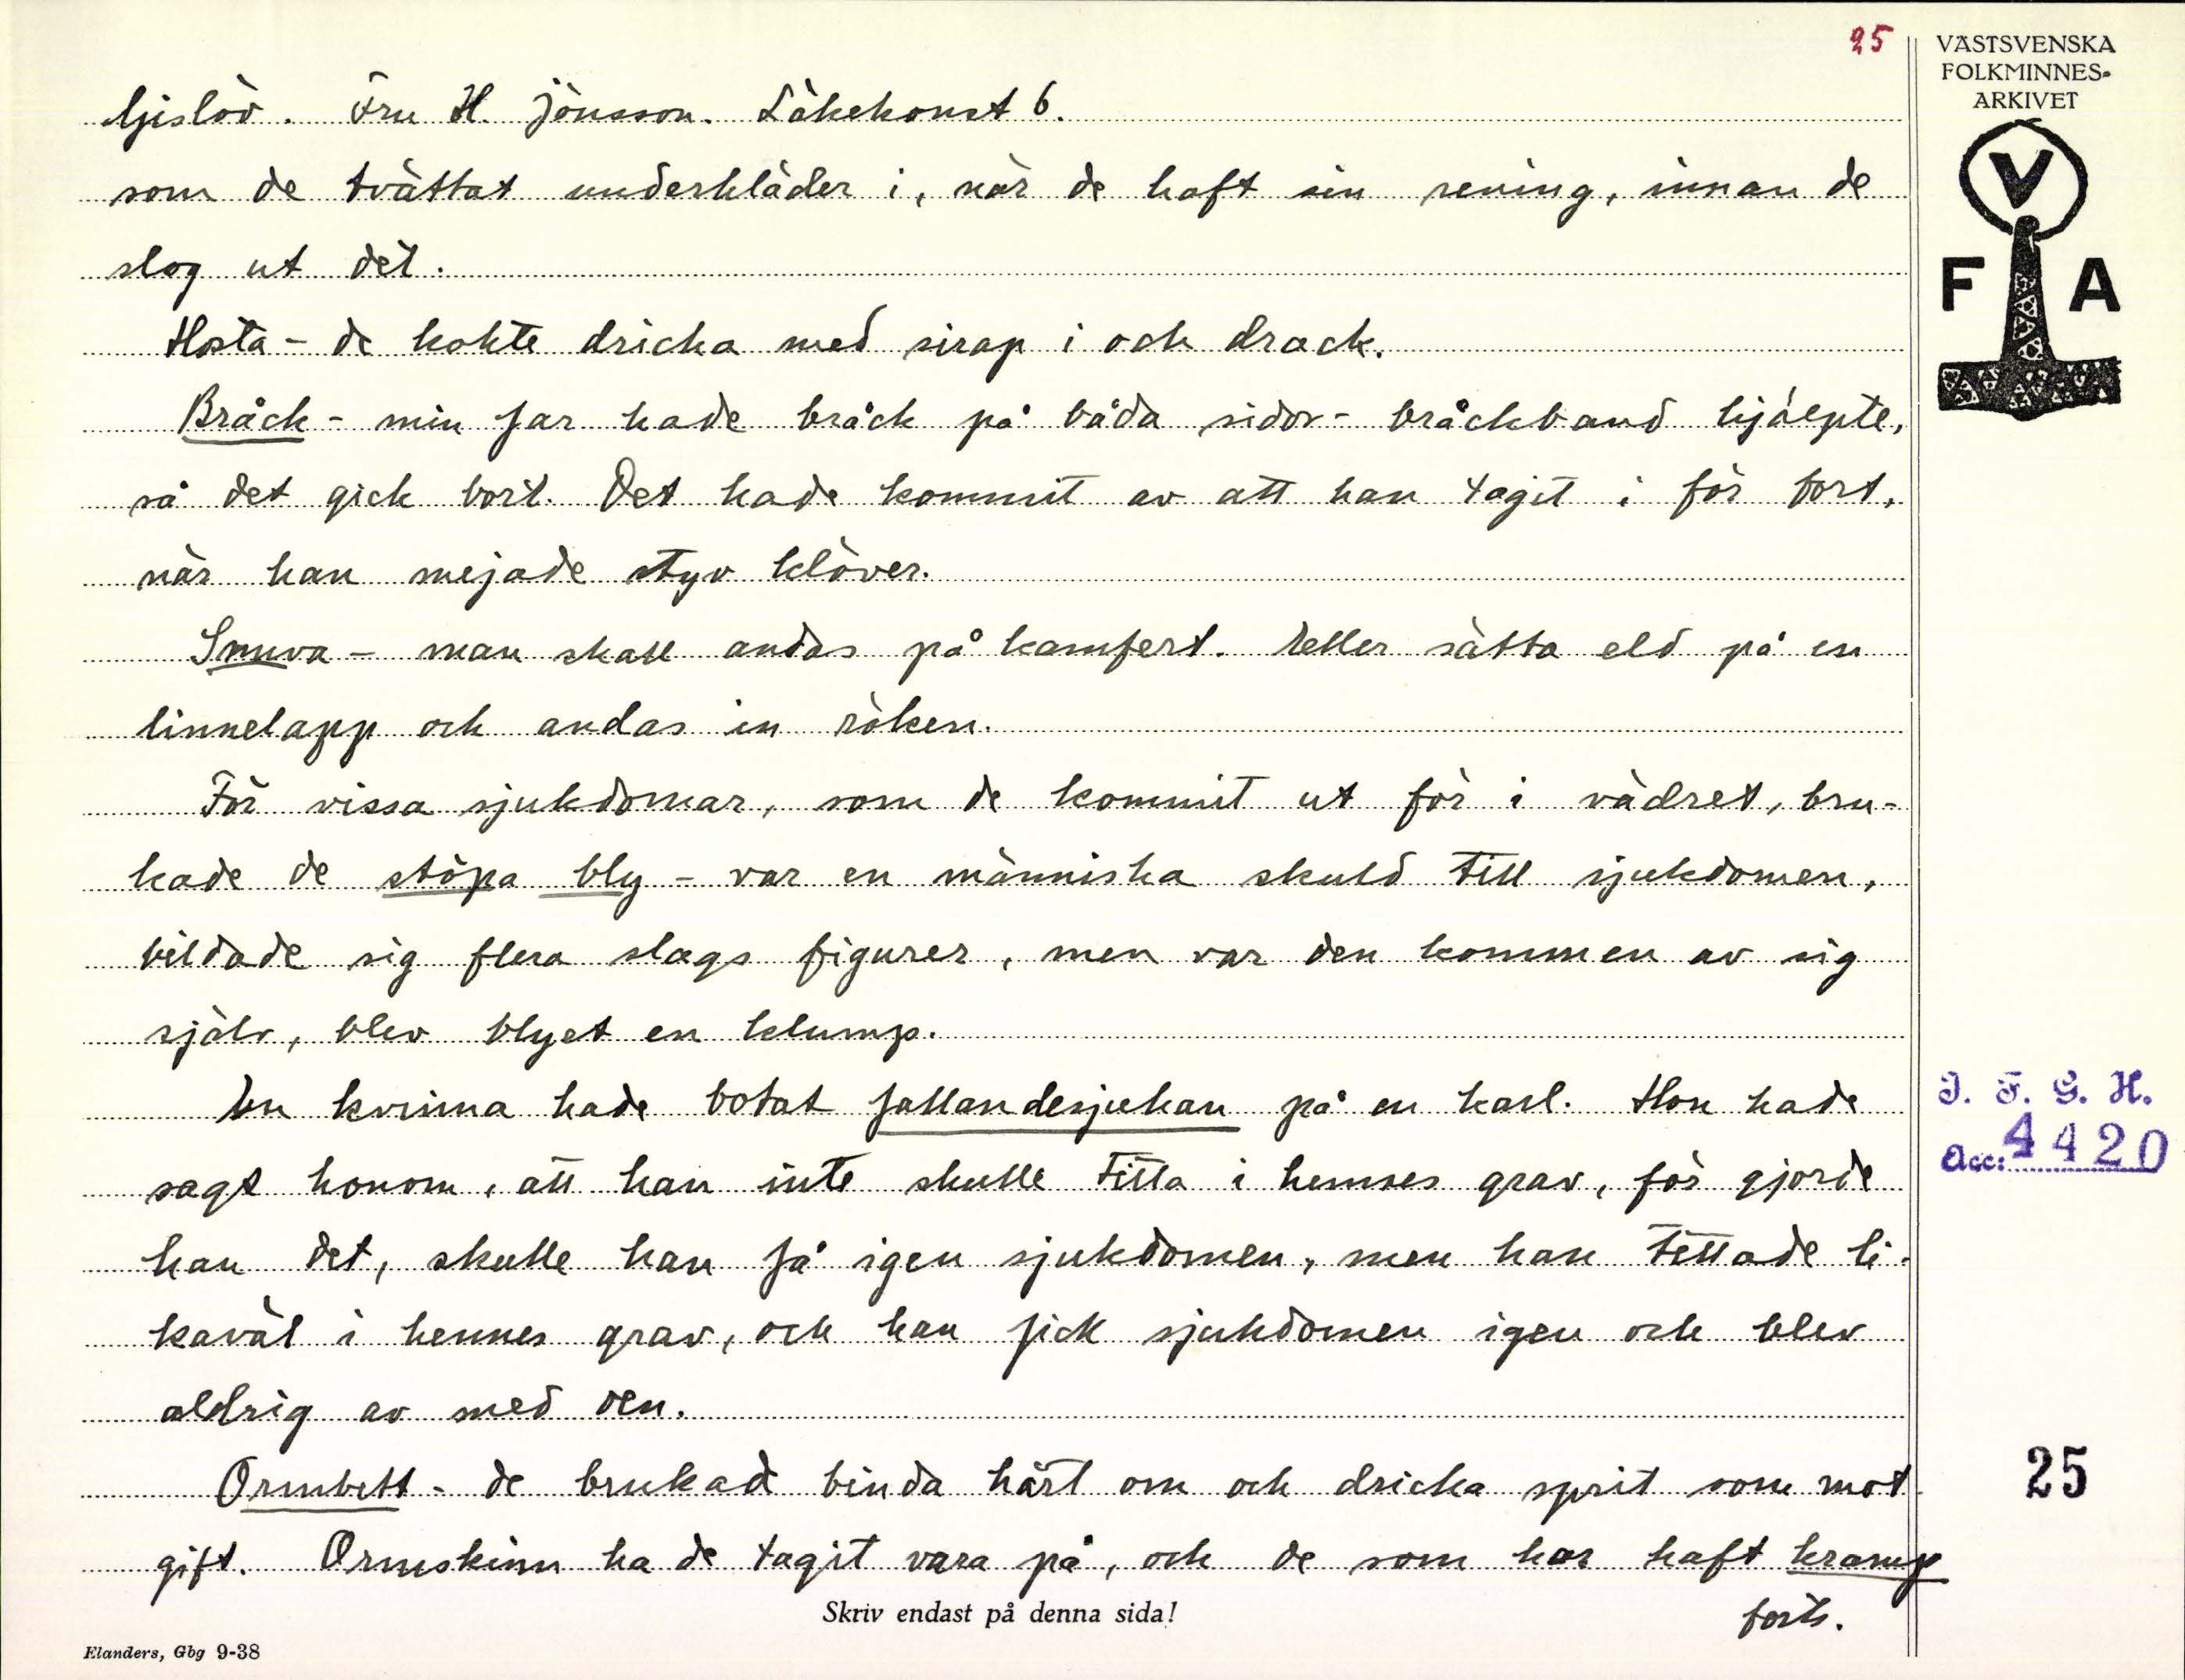 25
VÄSTSVENSKA
FOLKMINNES-
ARKIVET
V
F A
Gislöv. Fru H. Jönsson. Läkekonst 6.
som de tvättat underkläder i, när de haft sin rening, innan de
slog ut det.
Hosta - de kokte dricka med sirap i och drack.
Bråck - min far hade bråck på båda sidor - bråckband hjälpte,
så det gick bort. Det hade kommit av att han tagit i för fort,
när han mejade styv klöver.
Snuva - man skall andas på kamfert. Eller sätta eld på en
linnelapp och andas in röken.
För vissa sjukdomar, som de kommit ut för i vädret, bru-
kade de stöpa bly - var en människa skuld till sjukdomen,
bildade sig flera slags figurer, men var den kommen av sig
själv, blev blyet en klump.
En kvinna hade botat fallandesjukan på en karl. Hon hade
sagt honom, att han inte skulle titta i hennes grav, för gjorde
han det, skulle han få igen sjukdomen, men han tittade li-
kaväl i hennes grav, och han fick sjukdomen igen och blev
aldrig av med den.
Ormbett - de brukad binda hårt om och dricka sprit som mot-
gift. Ormskinn ha de tagit vara på, och de som har haft kramp
forts.
I. F. G. H.
Acc: 4420
25
Skriv endast på denna sida!
Elanders, Gbg 9-38